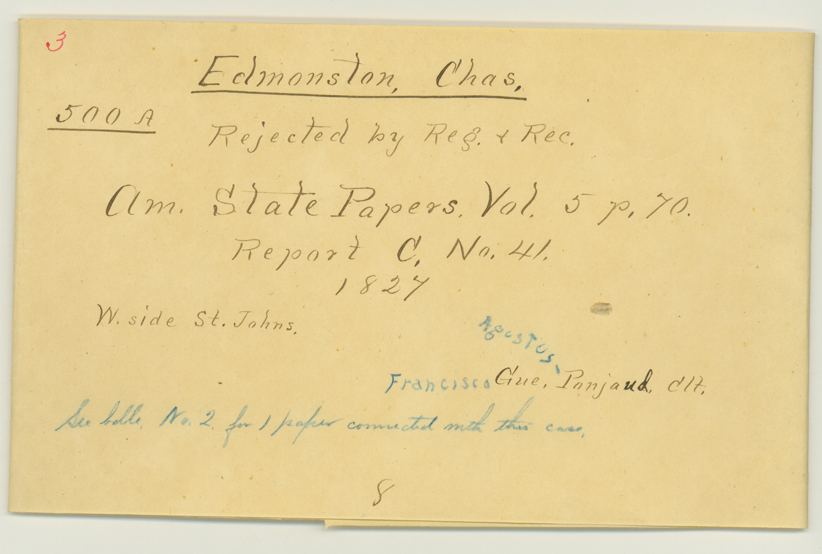 3
Edmonston, Chas.
500 A
Rejected by Reg. & Rec.
Am. State Papers. Vol. 5 p. 70.
Report C, No. 41.
1827
W. side St. Johns.
Agustus
Francisco Gue, Ponjaud, clt.
See bdle. No. 2. for 1 paper connected with this case.
8